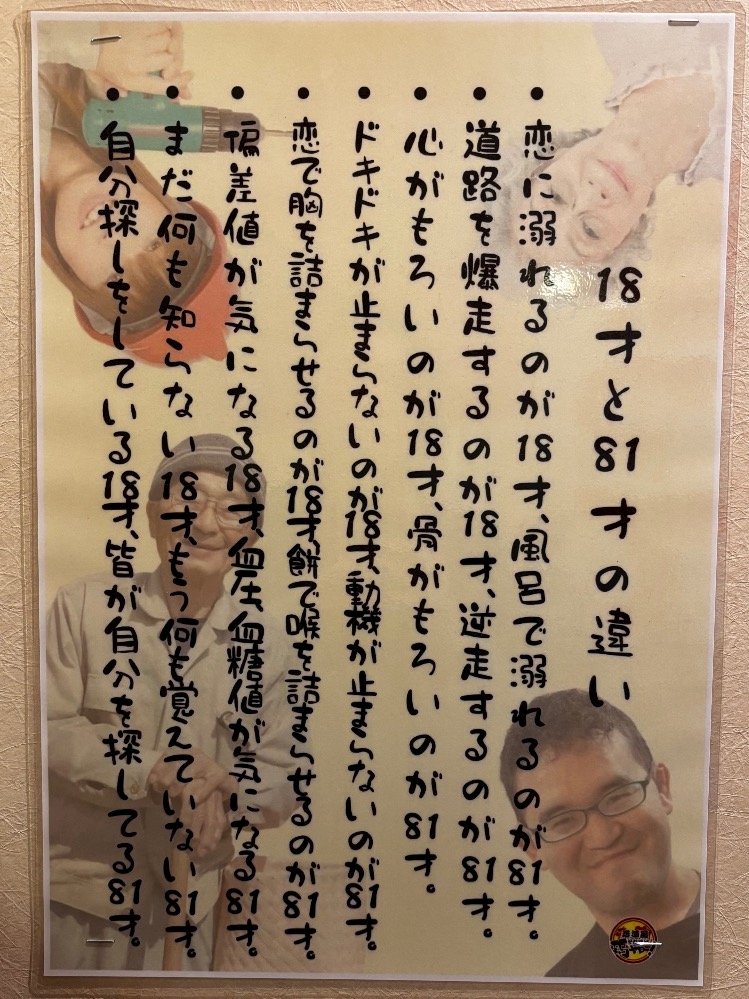 18才と81才の違い
• 恋に溺れるのが18才、風呂で溺れるのが81才。
• 道路を爆走するのが18才、逆走するのが81才。
• 心がもろいのが18才、骨がもろいのが81才。
• ドキドキが止まらないのが18才、動機が止まらないのが81才。
• 恋で胸を詰まらせるのが18才、餅で喉を詰まらせるのが81才。
• 偏差値が気になる18才、血圧、血糖値が気になる81才。
• まだ何も知らない18才、もう何も覚えていない81才。
• 自分探しをしている18才、皆が自分を探してる81才。
居酒屋